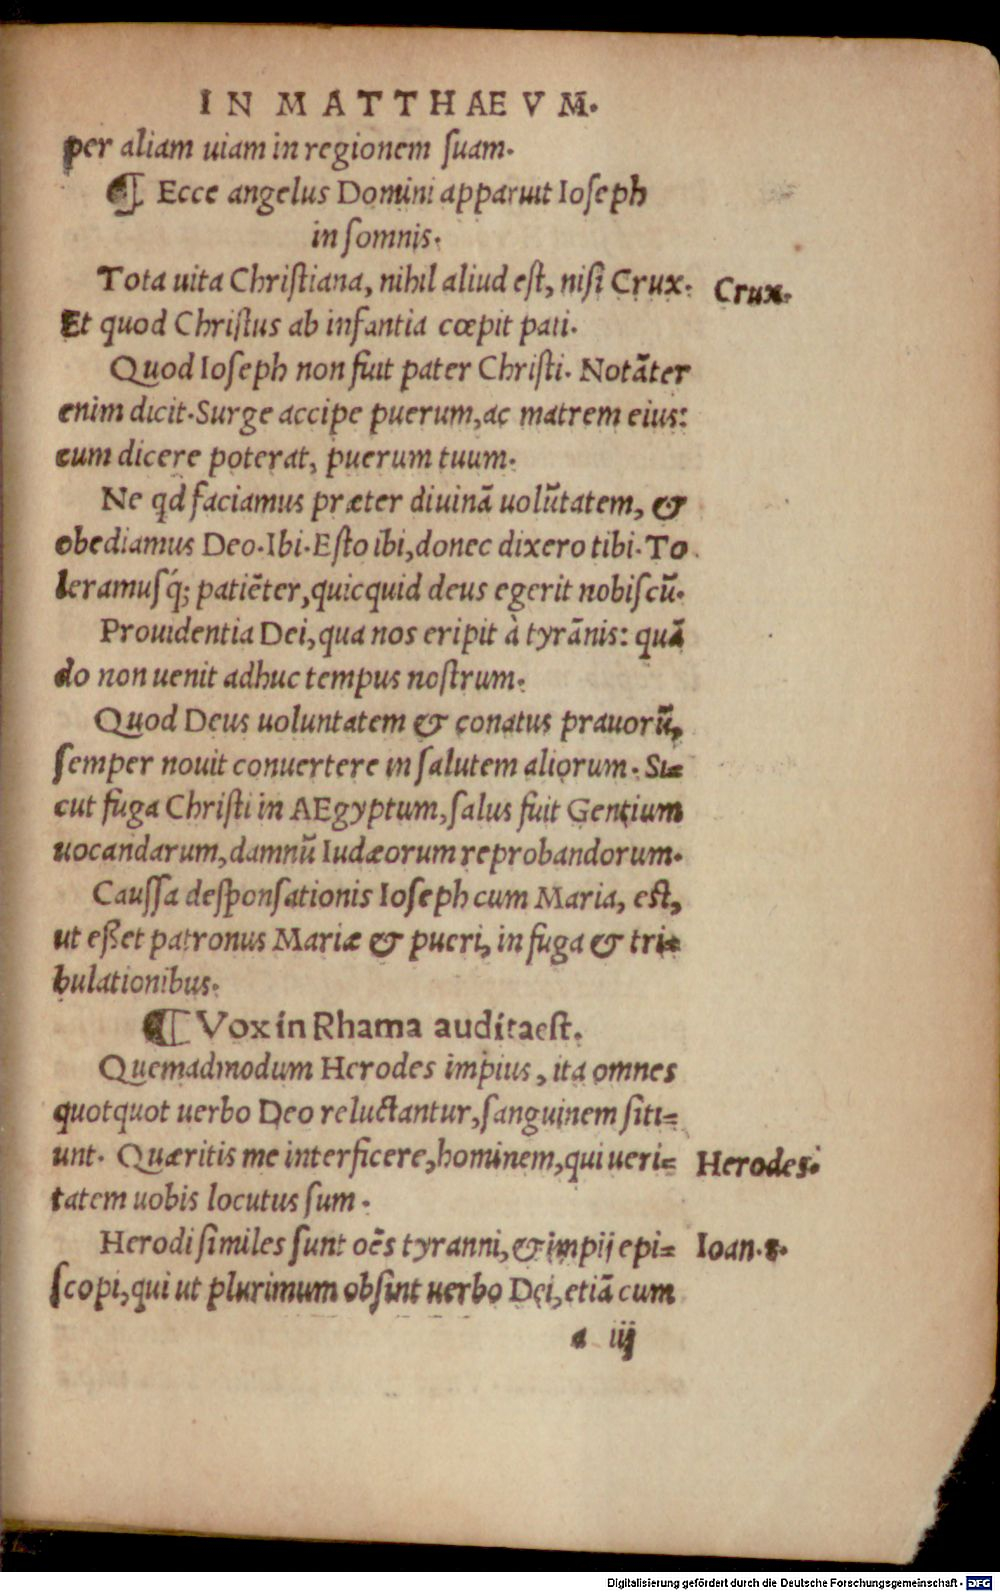 IN MATTHAEVM.
per aliam uiam in regionem ſuam.
¶ Ecce angelus Domini apparuit Ioſeph
in ſomnis.
Tota uita Chriſtiana, nihil aliud eſt, niſi Crux.
Crux.
Et quod Chriſtus ab infantia cœpit pati.
Quod Ioſeph non fuit pater Chriſti. Notãter
enim dicit. Surge accipe puerum, ac matrem eius:
cum dicere poterat, puerum tuum.
Ne qd faciamus præter diuinã uolũtatem, &
obediamus Deo. Ibi. Eſto ibi, donec dixero tibi. To
leramuſq́; patiẽter, quicquid deus egerit nobiſcũ.
Prouidentia Dei, qua nos eripit à tyrãnis: quã
do non uenit adhuc tempus noſtrum.
Quod Deus uoluntatem & conatus prauorũ,
ſemper nouit conuertere in ſalutem aliorum. Si=
cut fuga Chriſti in AEgyptum, ſalus fuit Gentium
uocandarum, damnũ Iudæorum reprobandorum.
Cauſſa deſponſationis Ioſeph cum Maria, eſt,
ut eßet patronus Mariæ & pueri, in fuga & tri=
bulationibus.
¶ Vox in Rhama audita eſt.
Quemadmodum Herodes impius, ita omnes
quotquot uerbo Deo reluctantur, ſanguinem ſiti=
unt. Quæritis me interficere, hominem, qui ueri=
Herodes.
tatem uobis locutus ſum.
Herodi ſimiles ſunt oẽs tyranni, & impij epi=
Ioan. 8.
ſcopi, qui ut plurimum obſint uerbo Dei, etiã cum
a iij
Digitalisierung gefördert durch die Deutsche Forschungsgemeinschaft - DFG